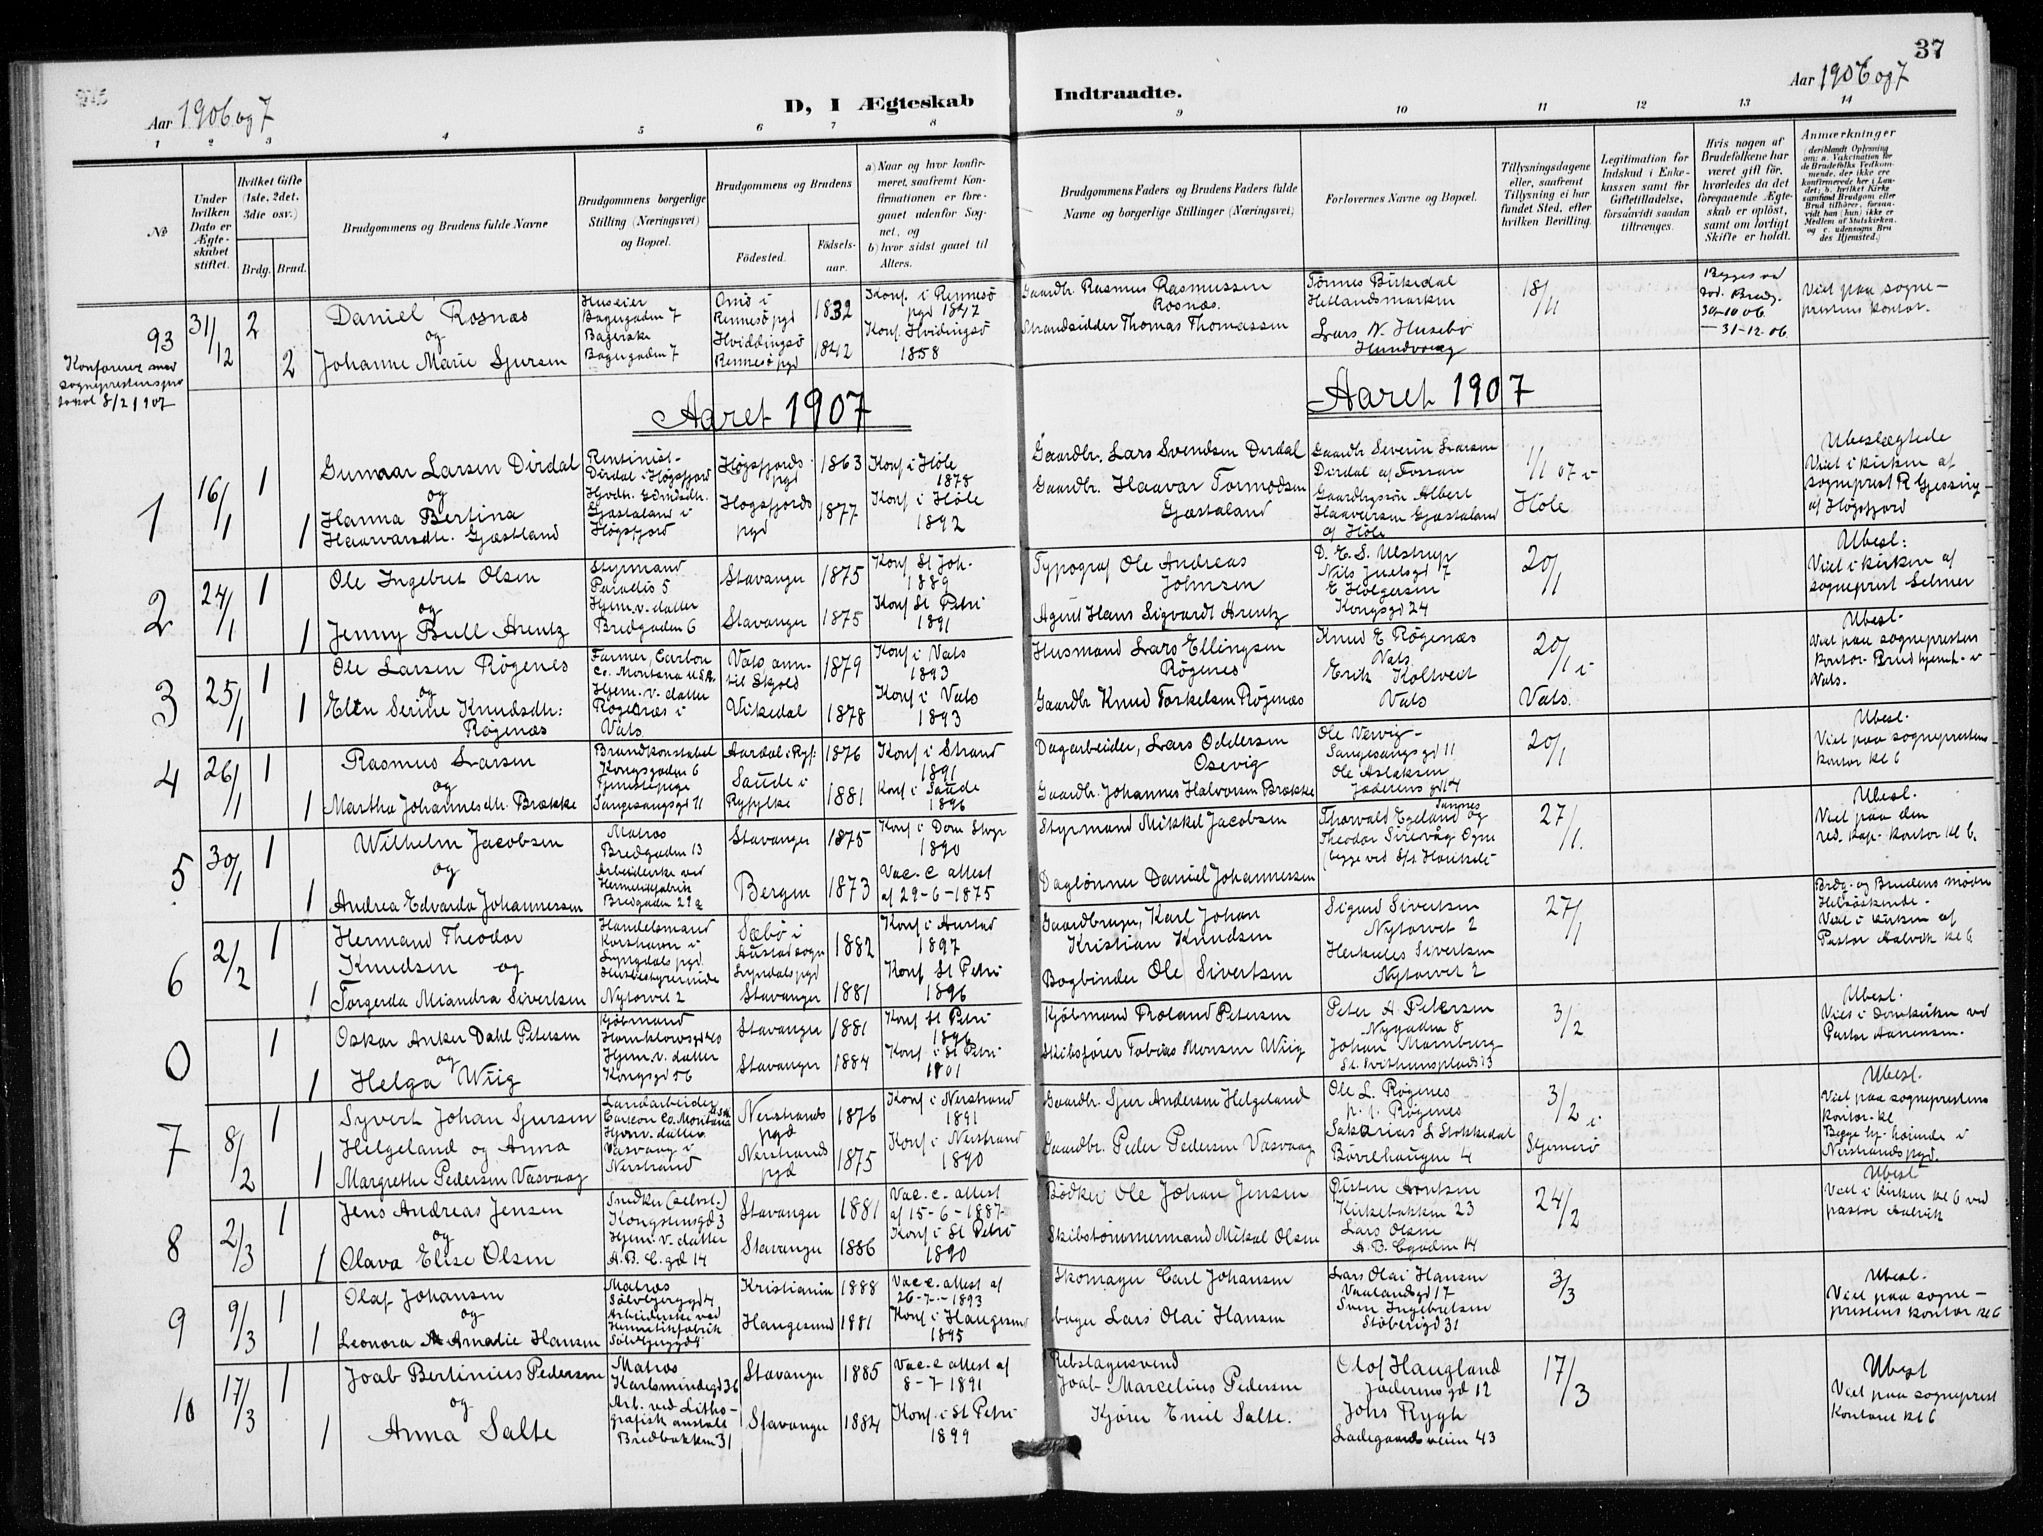 37
Aar 1906 og 7
D, I Ægteskab Indtraadte.
Aar 1906 og 7
1 2 3 4 5 6 7 8 9 10 11 12 13 14
No
Under hvilken Dato er Ægteskabet stiftet.
Hvilket Gifte (1ste, 2det, 3die osv.)
Brdg. Brud.
Brudgommens og Brudens fulde Navne
Brudgommens borgerlige Stilling (Næringsvei) og Bopæl.
Brudgommens og Brudens
Fødested. Fødselsaar.
a) Naar og hvor konfirmeret, saafremt Konfirmationen er foregaaet udenfor Sognet, og
b) hvor sidst gaaet til Alters.
Brudgommens Faders og Brudens Faders fulde Navne og borgerlige Stillinger (Næringsvei)
Forlovernes Navne og Bopæl.
Tillysningsdagene eller, saafremt Tillysning ei har fundet Sted, efter hvilken Bevilling.
Legitimation for Indskud i Enkekassen samt for Giftetilladelse, forsaavidt saadan tiltrænges.
Hvis nogen af Brudefolkene har været gift før, hvorledes da det foregaaende Ægteskab er opløst, samt om lovligt Skifte er holdt.
Anmærkninger
93
31/12 2
Daniel Rosnæs
og
2 Johanne Marie Sjursen
Huseier
Bagergaden 7
Bagerske
Bagergaden 7
Rennesø pgd 1832
Hviddingsø
Rennesø pgd 1842
Konf. i Rennesø
pgd 1847
Konf. Hvidingsø
1858
Gaardbr. Rasmus Rasmussen
Rosnæs.
Strandsidder Thomas Thomassen
Tønnes Birkedal
Hetlandsmarken
Lars N. Husebø
Hundvaag
18/11
30-10-06
31-12-06
Viet paa sogneprestens kontor.
Konfereret med
sogneprestens protokol 8/2 1907
Aaret 1907
Aaret 1907
1
16/1 1
Gunnar Larsen Dirdal
og
1 Hanna Bertina
Haavarsdtr. Gjæstland
Rentinist
Dirdal i Høgsfjord
Gjæstaland i
Høgsfjord
Høgsfjords pgd 1863
Høgsfjords pgd 1877
Konf i Høle
1878
Konf i Høle
1892
Gaardbr. Lars Svendsen Dirdal
Gaardbr. Haavar Tormodsen
Gjæstaland
Gaardbr Severin Larsen
Dirdal af Forsan
Gaardbrgssøn Albert
Haaversen Gjæstaland
af Høle
1/1 07 i
Høle
Ubeslægtede
Viet i kirken af
sogneprest R Gjessing
af Høgsfjord
2
24/1 1
Ole Ingebret Olsen
og
1 Jenny Bull Arentz
Styrmand
Paradis 5
Hjem. v. datter
Bredgaden 6
Stavanger 1875
Stavanger 1875
Konf St Joh.
1889
Konf St Petri
1891
Typograf Ole Andreas
Johnsen
Agent Hans Sigvardt Arentz
D. E. S. Ulstrup
Nils Juelsgd 7
E Holgersen
Kongsgd 24
20/1
Ubesl:
Viet i kirken af
sogneprest Selmer
3
25/1 1
Ole Larsen Røgenes
og
1 Elen Serine Knudsdtr:
Røgenæs
Farmer, Carbon
Co. Montana U.S.A.
Hjem. v. datter
Røgenæs i
Vats
Vats, ann.
til Skjold 1879
Vikedal 1878
Konf i Vats
1893
Konf i Vats
1893
Husmand Lars Ellingsen
Røgenes
Gaardbr Knud Torkelsen Røgenæs
Knud E Røgenæs
Vats
Erik Koltveit
Vats
20/1 i
Vats.
Ubesl.
Viet paa sogneprestens
kontor. Brud hjemh. i
Vats.
4
26/1 1
Rasmus Larsen
og
1 Martha Johannesdtr. Brække
Brandkonstabel
Kongsgaden 6
Tjenestepige
Langesangsgd 11
Aardal i Ryf: 1876
Saude i
Ryfylke 1881
Konf i Strand
1891
Konf i Saude
1896
Dagarbeider, Lars Oddersen
Osevig
Gaardbr. Johannes Halvorsen Brække
Ole Vervig
Langesangsgd 11
Ole Aslaksen
Jæderensgd 14
20/1
Ubesl.
Viet paa sogneprestens
kontor kl 6
5
30/1 1
Wilhelm Jacobsen
og
1 Andrea Edvarda Johannessen
Matros
Bredgaden 13
Arbeiderske ved
Hermetikfabrik
Bredgaden 29a
Stavanger 1875
Bergen 1873
Konf i Dom Styr
1890
Vac. c attest
af 29-6-1875
Styrmand Mikkel Jacobsen
Daglønner Daniel Johannessen
Thorvald Egeland og
Theodor Sirevåg Ogne
27/1.
Ubesl.
Viet paa den
res. kap. kontor kl 6.
6
2/2 1
Hermand Theodor
Knudsen og
1 Torgerda Miandra Sivertsen
Handelsmand
Korshavn i
Lyngdals pgd
Husbestyrerinde
Nytorvet 2
Sæbø i
Austad sogn
Lyndals pgd 1882
Stavanger 1881
Konf i Austad
1897
Konf St Petri
1896
Gaardbruger, Karl Johan
Kristian Knudsen
Bogbinder Ole Sivertsen
Sigurd Sivertsen
Nytorvet 2
Herkules Sivertsen
Nytorvet 2
27/1
Brdg. og Brudens mødre
Helsøskende.
Viet i kirken af
Pastor Aalvik kl 6
0
1
Oskar Anker Dahl Petersen
og
1 Helga Wiig
Kjøbmand
Hjem. v. datter
Kongsgd 56
Stavanger 1881
Stavanger 1884
Konf St Petri
1896
Konf i St Petri
1901
Kjøbmand Tholand Petersen
Skibsfører Tobias Monsen Wiig
Peter A Petersen
Nygaden 8
Johan Mamberg
St. Svithunsplads 13
3/2
Ubesl.
Viet i Domkirken ved
Pastor Aanensen.
7
8/2 1
Syvert Johan Sjursen
Helgeland og Anna
1 Margrethe Pedersen Vasvaag
Landarbeider
Carbon Co. Montana U.S.A.
Hjem. v. datter
Vasvaag i
Nerstrand
Nerstrands
pgd 1876
Nerstrands
pgd 1875
Konf i Nerstrand
1891
Konf i Nerstrand
1890
Gaardbr. Sjur Andersen Helgeland
Gaardbr. Peder Pedersen Vasvaag
Ole L. Røgenes
p. t. Røgenes
Sakarias S Stokkedal
Bøvelhaugen 4
3/2 i
Sjernerø
Ubesl.
Viet paa sogneprestens
kontor. kl
Begge hj. hørende i
Nerstrands pgd.
8
2/3 1
Jens Andreas Jensen
og
1 Olava Elise Olsen
Snedker (selvst.)
Kongstensgd 3
Hjem. v. datter
A. B. C. gd 14
Stavanger 1881
Stavanger 1886
Vac. c. attest
af 15-6-1887
Konf i St Petri
1890
Bødker Ole Johan Jensen
Skibstømmermand Mikal Olsen
Østen Arntsen
Kirkebakken 23
Lars Olsen
A. B. Cgaden 14
24/2
Ubesl
Viet i kirken kl 6 ved
pastor Aalvik
9
9/3 1
Olaf Johansen
og
1 Leonora Amalie Hansen
Matros
Sølvbjerggd 4
Arbeiderske ved
Hermetikfabrik
Sølvbjerggd 4
Kristiania 1888
Haugesund 1881
Vac c. attest af
26-7-1893
Konf i Haugesund
1895
Skomager Carl Johansen
bager Lars Olai Hansen
Lars Olai Hansen
Vaalandsgd 17
Sven Ingebretsen
Støberigd 31
3/3
Ubesl.
Viet paa sogneprestens kontor kl 6
10
17/3 1
Joab Bertinius Pedersen
og
1 Anna Salte
Matros
Karlsmindegd 36
Arb. ved Lithografisk anstalt
Bredbakken 31
Stavanger 1885
Stavanger 1884
Vac. c attest af
8-7 1891
Konf. i St Petri
1899
Rebslagersvend
Joab Marcelius Pedersen
Kjørn Emil Salte.
Olof Haugland
Jæderensgd 12
Johs Rygh
Ladegaardsveien 43
17/3
Ubesl
Viet paa sogneprest
kontoret kl 6